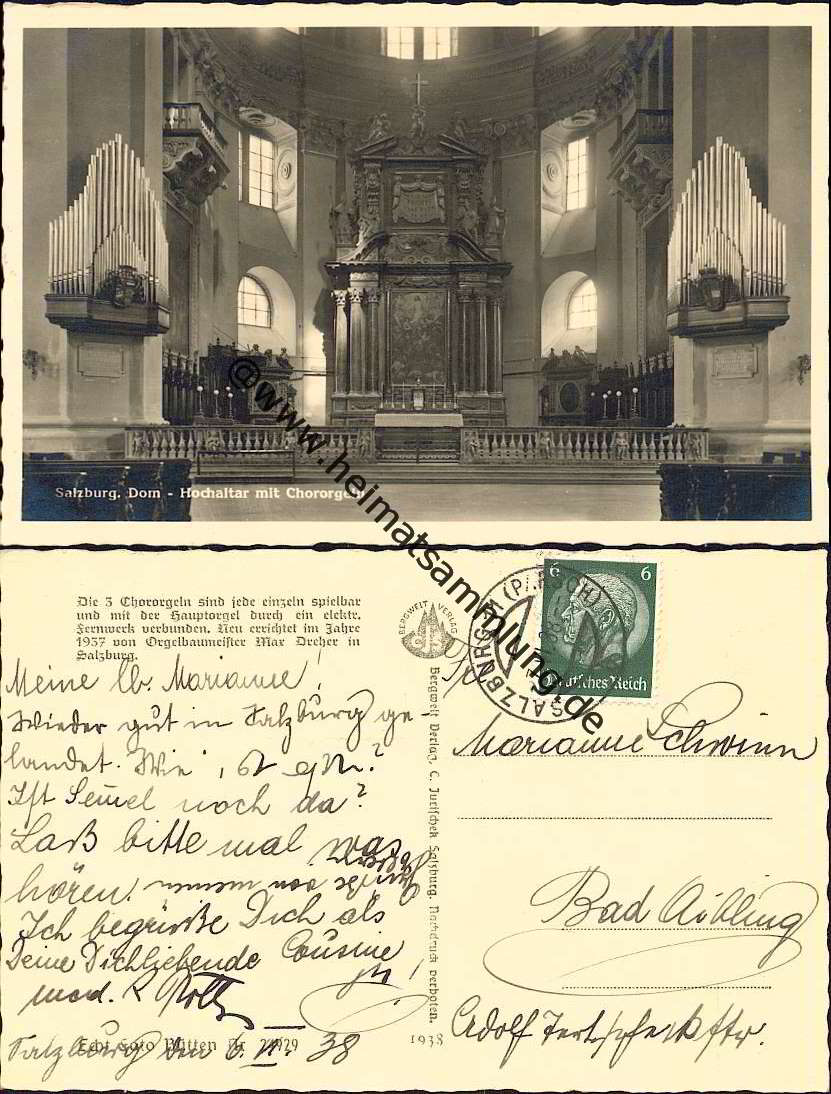 Salzburg. Dom - Hochaltar mit Chororgeln
@www.heimatsammlung.de
Die 3 Chororgeln sind jede einzeln spielbar
und mit der Hauptorgel durch ein elektr.
Fernwerk verbunden. Neu errichtet im Jahre
1937 von Orgelbaumeister Max Dreher in
Salzburg.
Meine lb. Marianne!
Wieder gut in Salzburg ge-
landet. Wie
Ist noch da?
Laß bitte mal was
hören.
Ich begrüße Dich als
Deine Dichliebende Cousine
Salzburg den 6. II. 38
Echt Foto Bütten Nr. 24929
BERGWELT VERLAG
Bergwelt Verlag, C. Jurischek Salzburg. Nachdruck verboten.
1938
SALZBURG
6 6
Deutsches Reich
Marianne Schwinn
Bad Aibling